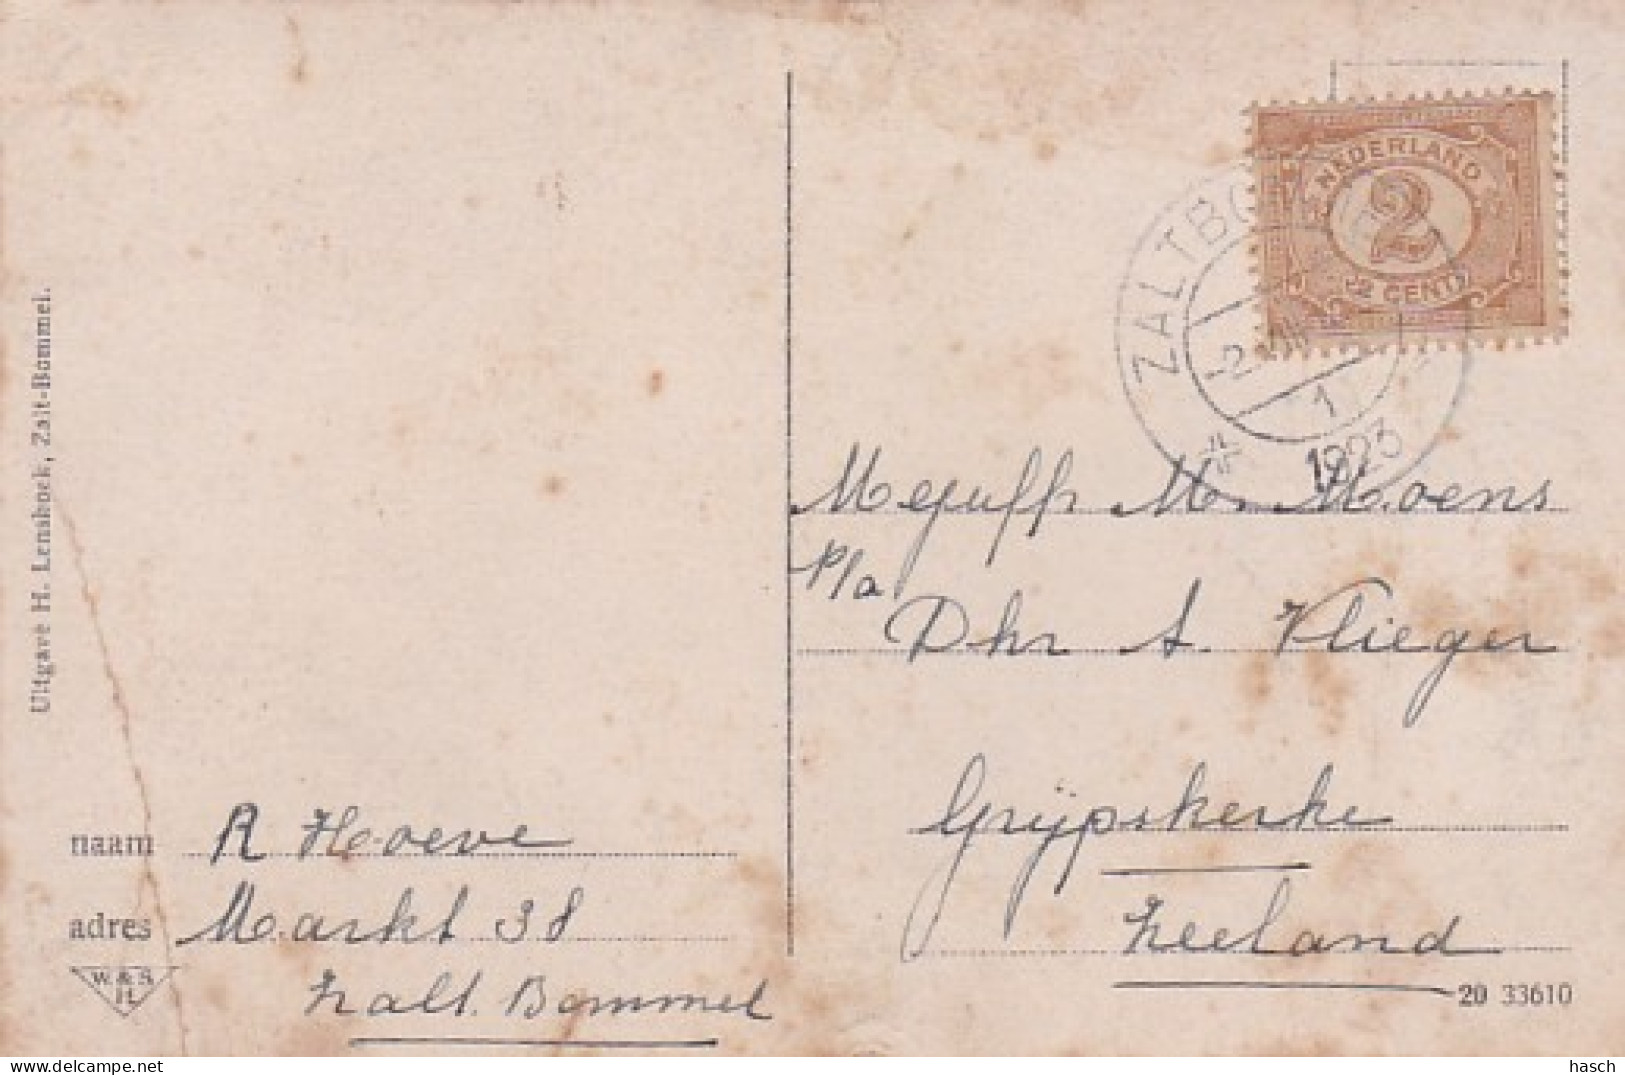 Uitgave H. Lensinck, Zalt-Bommel.
NEDERLAND
2
2 CENT
ZALTBO
-2.VIII
1
1923
Mejuffr M. Moens
p/a
Dhr A. Vlieger
Grijpskerke
Zeeland
naam R Hoeve
adres Markt 38
Zalt. Bommel
W. & S.
H.
20 33610
delcampe.net
hasch